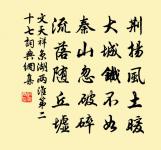 荆揚風土暖
大城鐵不如
秦山忽破碎
流落隨丘墟
文天祥京湖兩淮第二
十七詞典網集